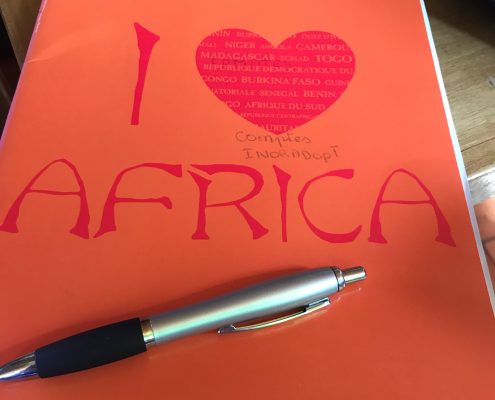 I
BENIN BURKINA FASO COTE D'I
MALI NIGER ANGOLA CAMEROU
MADAGASCAR TCHAD TOGO
REPUBLIQUE DEMOCRATIQUE DU
CONGO BURKINA FASO GUIN
EQUATORIALE SENEGAL BENIN A
TOGO AFRIQUE DU SUD
REPUBLIQUE CENTRAFRIC
MAURITAN
Comptes
INORADOPT
AFRICA